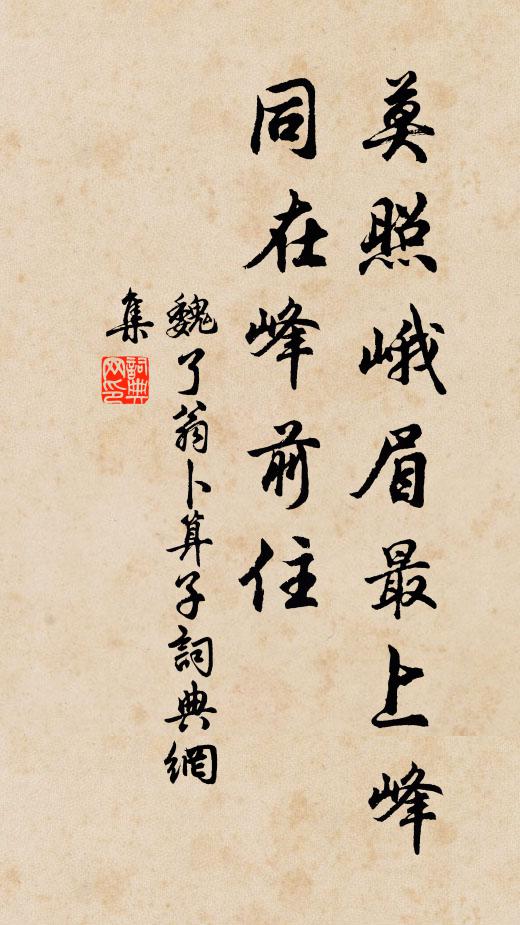 莫照峨眉最上峰
同在峰前住
魏了翁卜算子詞典網
集
詞典
网印